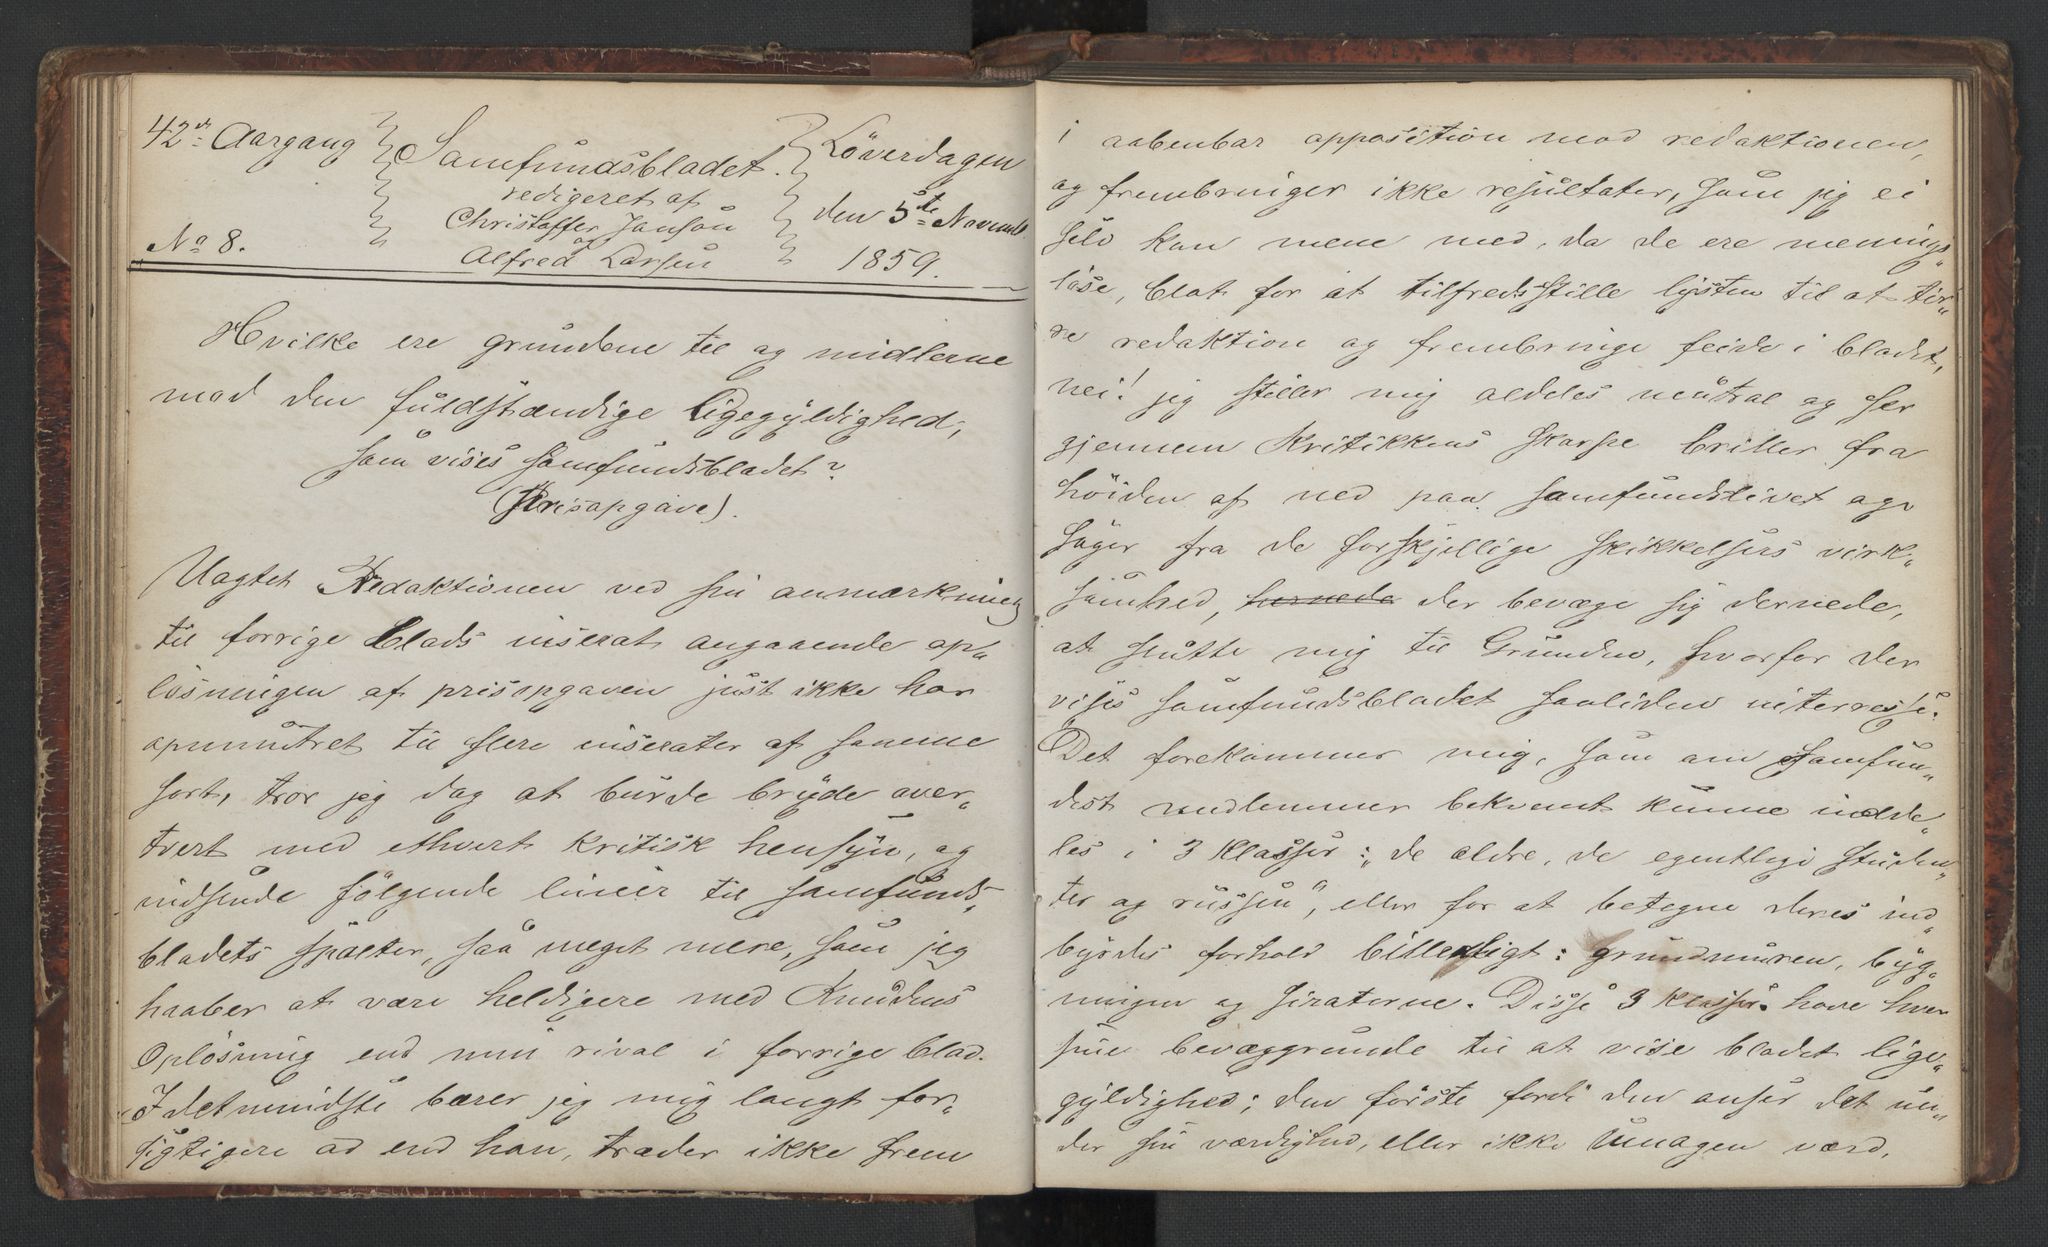 42de Aargang
Samfundsbladet.
Löverdagen
redigeret af
Christoffer Janson
og
Alfred Larsen
den 5te Novemb.
No 8.
1859.
Hvilke ere grundene til og midlerne
mod den fuldstændige ligegyldighed,
som vises samfundsbladet?
(Prisopgave).
Uagtet Redaktionen ved sin anmærkning
til forrige blads inserat angaaende op„
lösningen af prisopgaven just ikke har
opmuntret til flere inserater af samme
sort, tror jeg dog at burde bryde over„
tvert med ethvert kritisk hensyn, og
indsende fölgende linier til samfunds„
bladets spalter, saa meget mere, som jeg
haaber at være heldigere med Knudens
Oplösning end min rival i forrige blad.
I det mindste bærer jeg mig langt for„
sigtigere ad end han, træder ikke frem
i aabenbar opposition mod redaktionen,
og frembringer ikke resultater, som jeg ei
selv kan mene med, da de ere menings„
löse, blot for at tilfredsstille lysten til at tir„
re redaktion og frembringe feide i bladet,
nei! jeg stiller mig aldeles neutral og ser
gjennem kritikkens skarpe briller fra
höiden af ned paa samfundslivet og
söger fra de forskjellige skikkelsers virk„
somhed, hernede der bevæge sig dernede,
at slutte mig til Grunden, hvorfor der
vises samfundsbladet saaliden interesse.
Det forekommer mig, som om Samfun„
dest medlemmer bekvemt kunne indde„
les i 3 klasser: „de ældre, de egentlige studen„
ter og russen“, eller for at betegne deres ind„
byrdes forhold billedligt: grundmuren, byg„
ningen og siraterne. Disse 3 klasser have hver
sine bevæggrunde til at vise bladet lige„
gyldighed; den förste fordi den anser det un„
der sin værdighed, eller ikke Umagen værd,